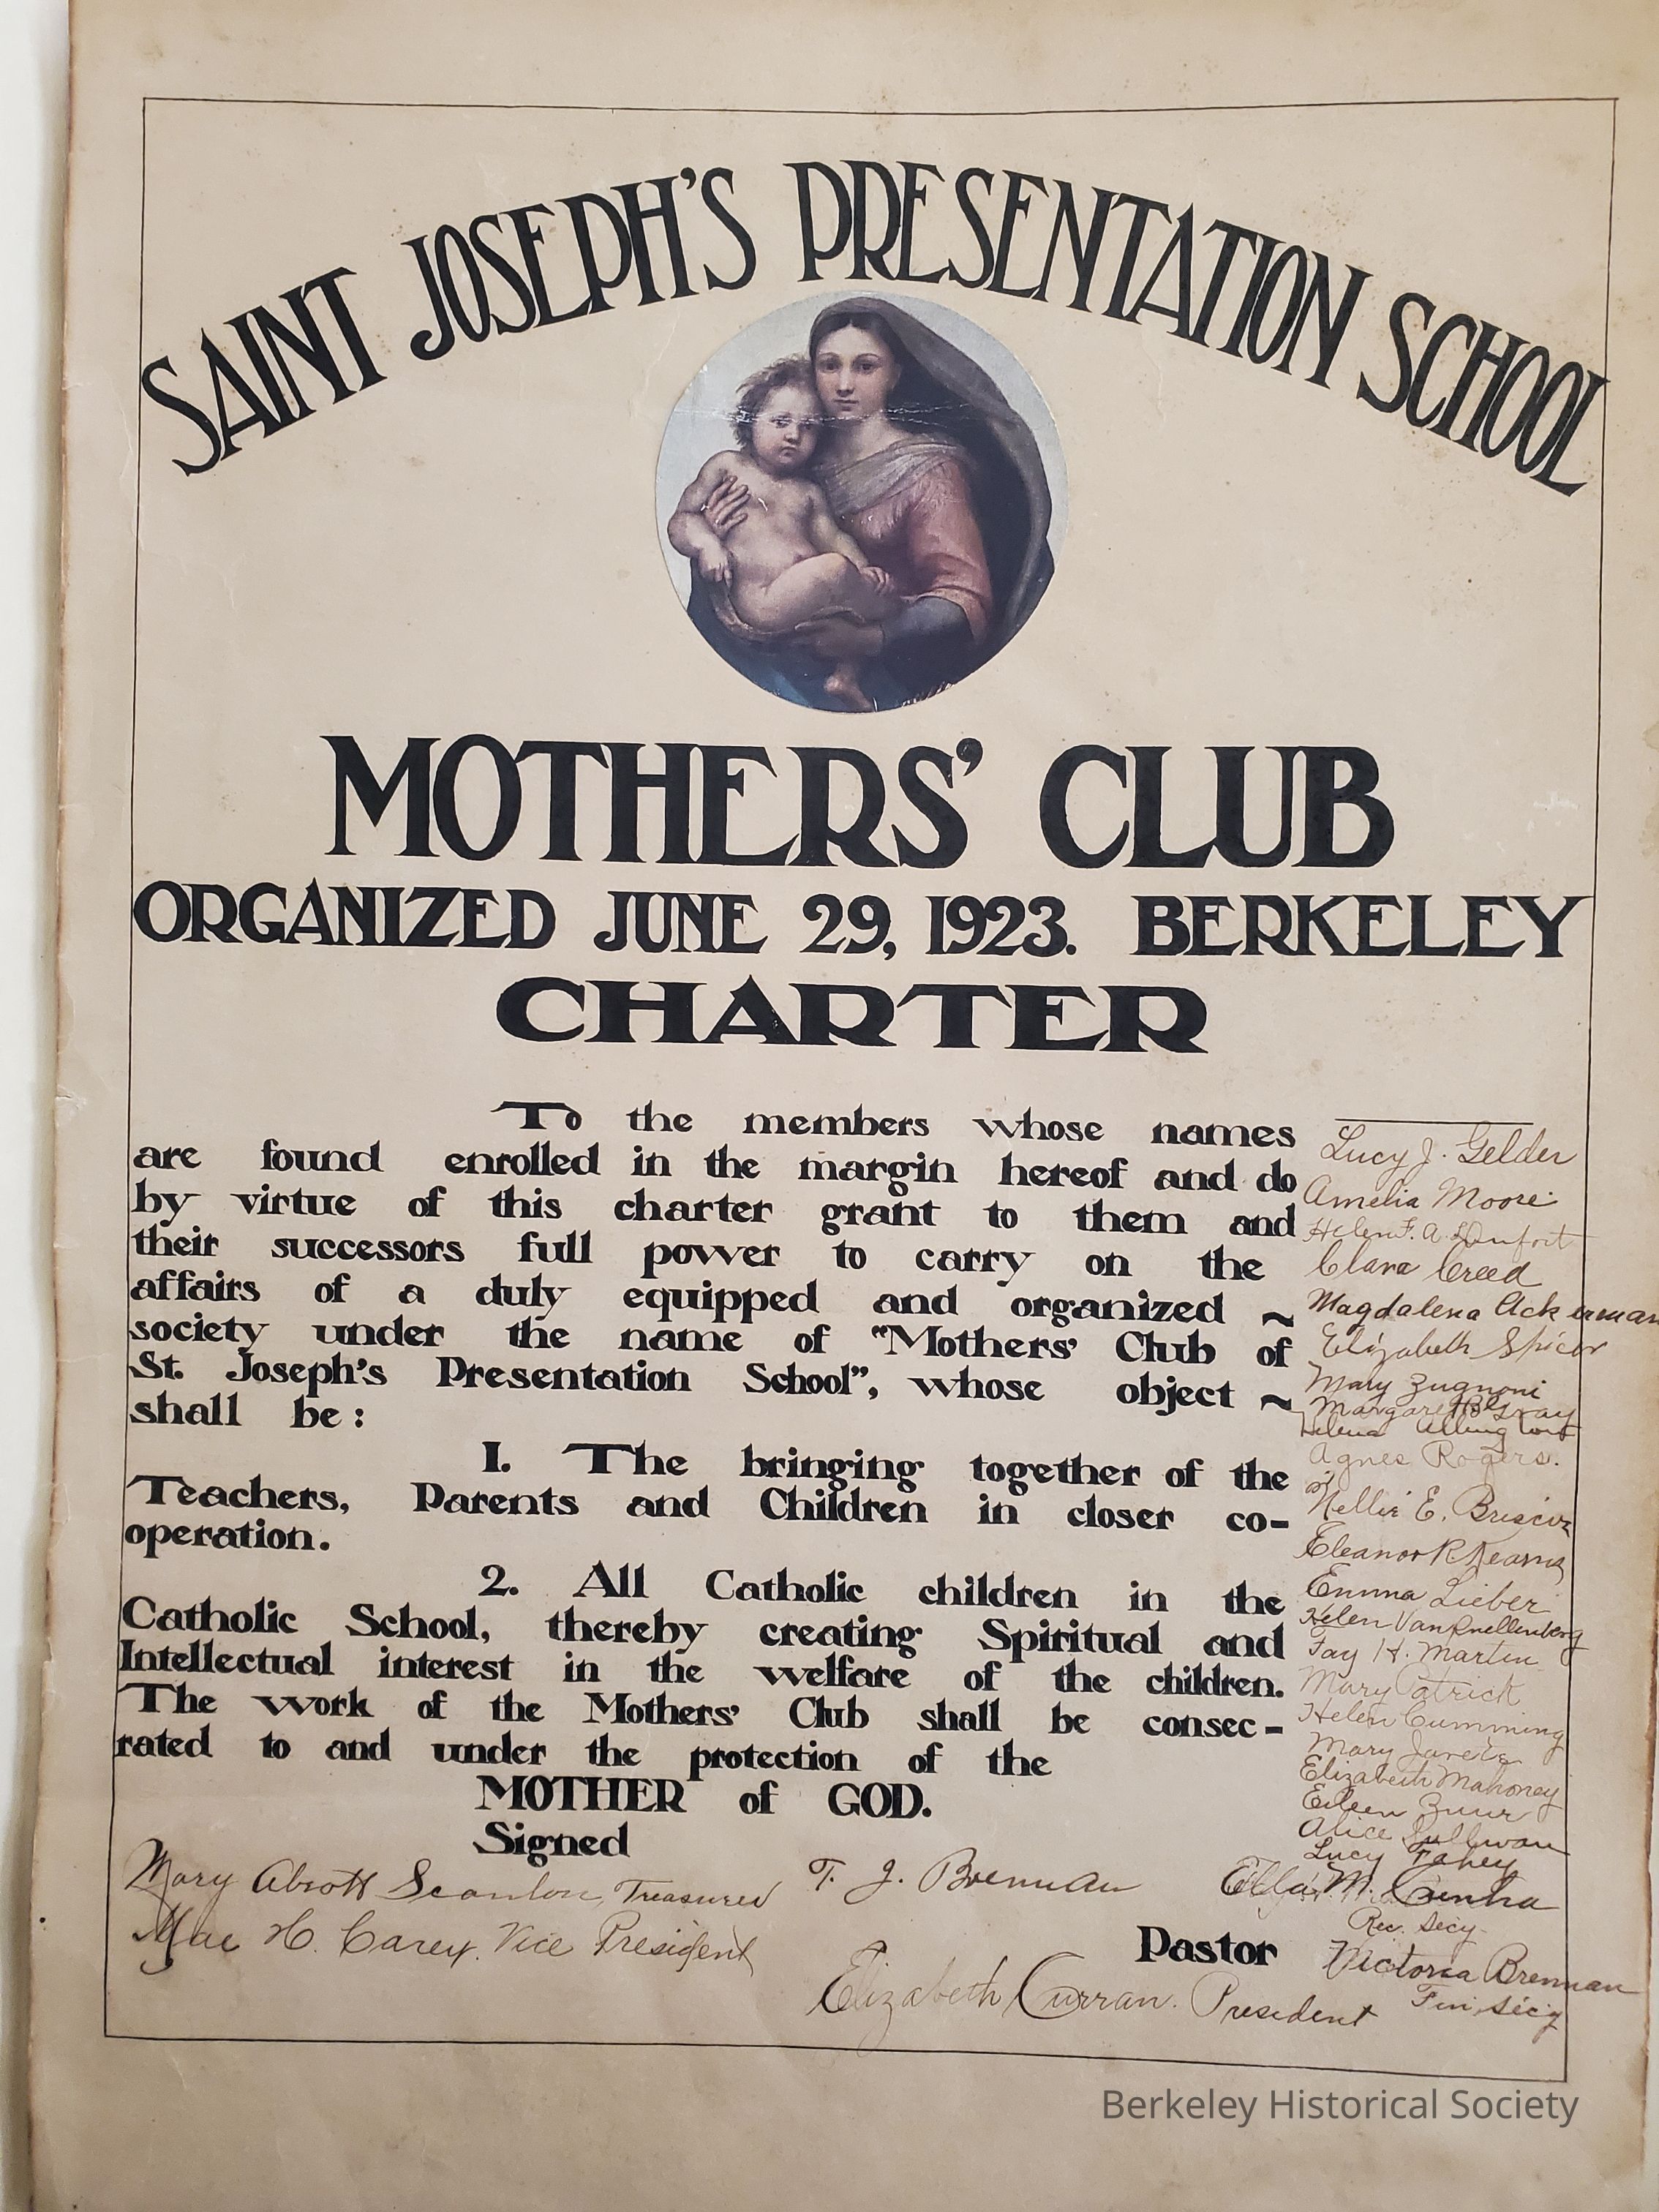 SAINT JOSEPH'S PRESENTATION SCHOOL
MOTHERS' CLUB
ORGANIZED JUNE 29, 1923. BERKELEY
CHARTER
To the members whose names
are found enrolled in the margin hereof and do
by virtue of this charter grant to them and
their successors full power to carry on the
affairs of a duly equipped and organized ~
society under the name of "Mothers' Club of
St. Joseph's Presentation School", whose object ~
shall be:
1. The bringing together of the
Teachers, Parents and Children in closer co-
operation.
2. All Catholic children in the
Catholic School, thereby creating Spiritual and
Intellectual interest in the welfare of the children.
The work of the Mothers' Club shall be consec-
rated to and under the protection of the
MOTHER of GOD.
Signed
Lucy J. Gelder
Amelia Moore
Helen F. A.
Clara Creed
Magdalena Ackerman
Elizabeth Spicer
Mary Zugnoni
Margaret B. Gray
Agnes Rogers.
Nellie E. Briscoe
Eleanor R. Kearns
Emma Lieber
Helen
Fay H. Martin
Mary Patrick
Helen Cumming
Mary
Elizabeth Mahoney
Eileen
Alice Sullivan
Lucy Fahey
Ella M. Cunha
Rec. Secy.
Victoria Brennan
Fin. Secy
Mary Scanlon, Treasurer
Mae H. Carey. Vice President
T. J. Brennan
Pastor
Elizabeth Curran. President
Berkeley Historical Society